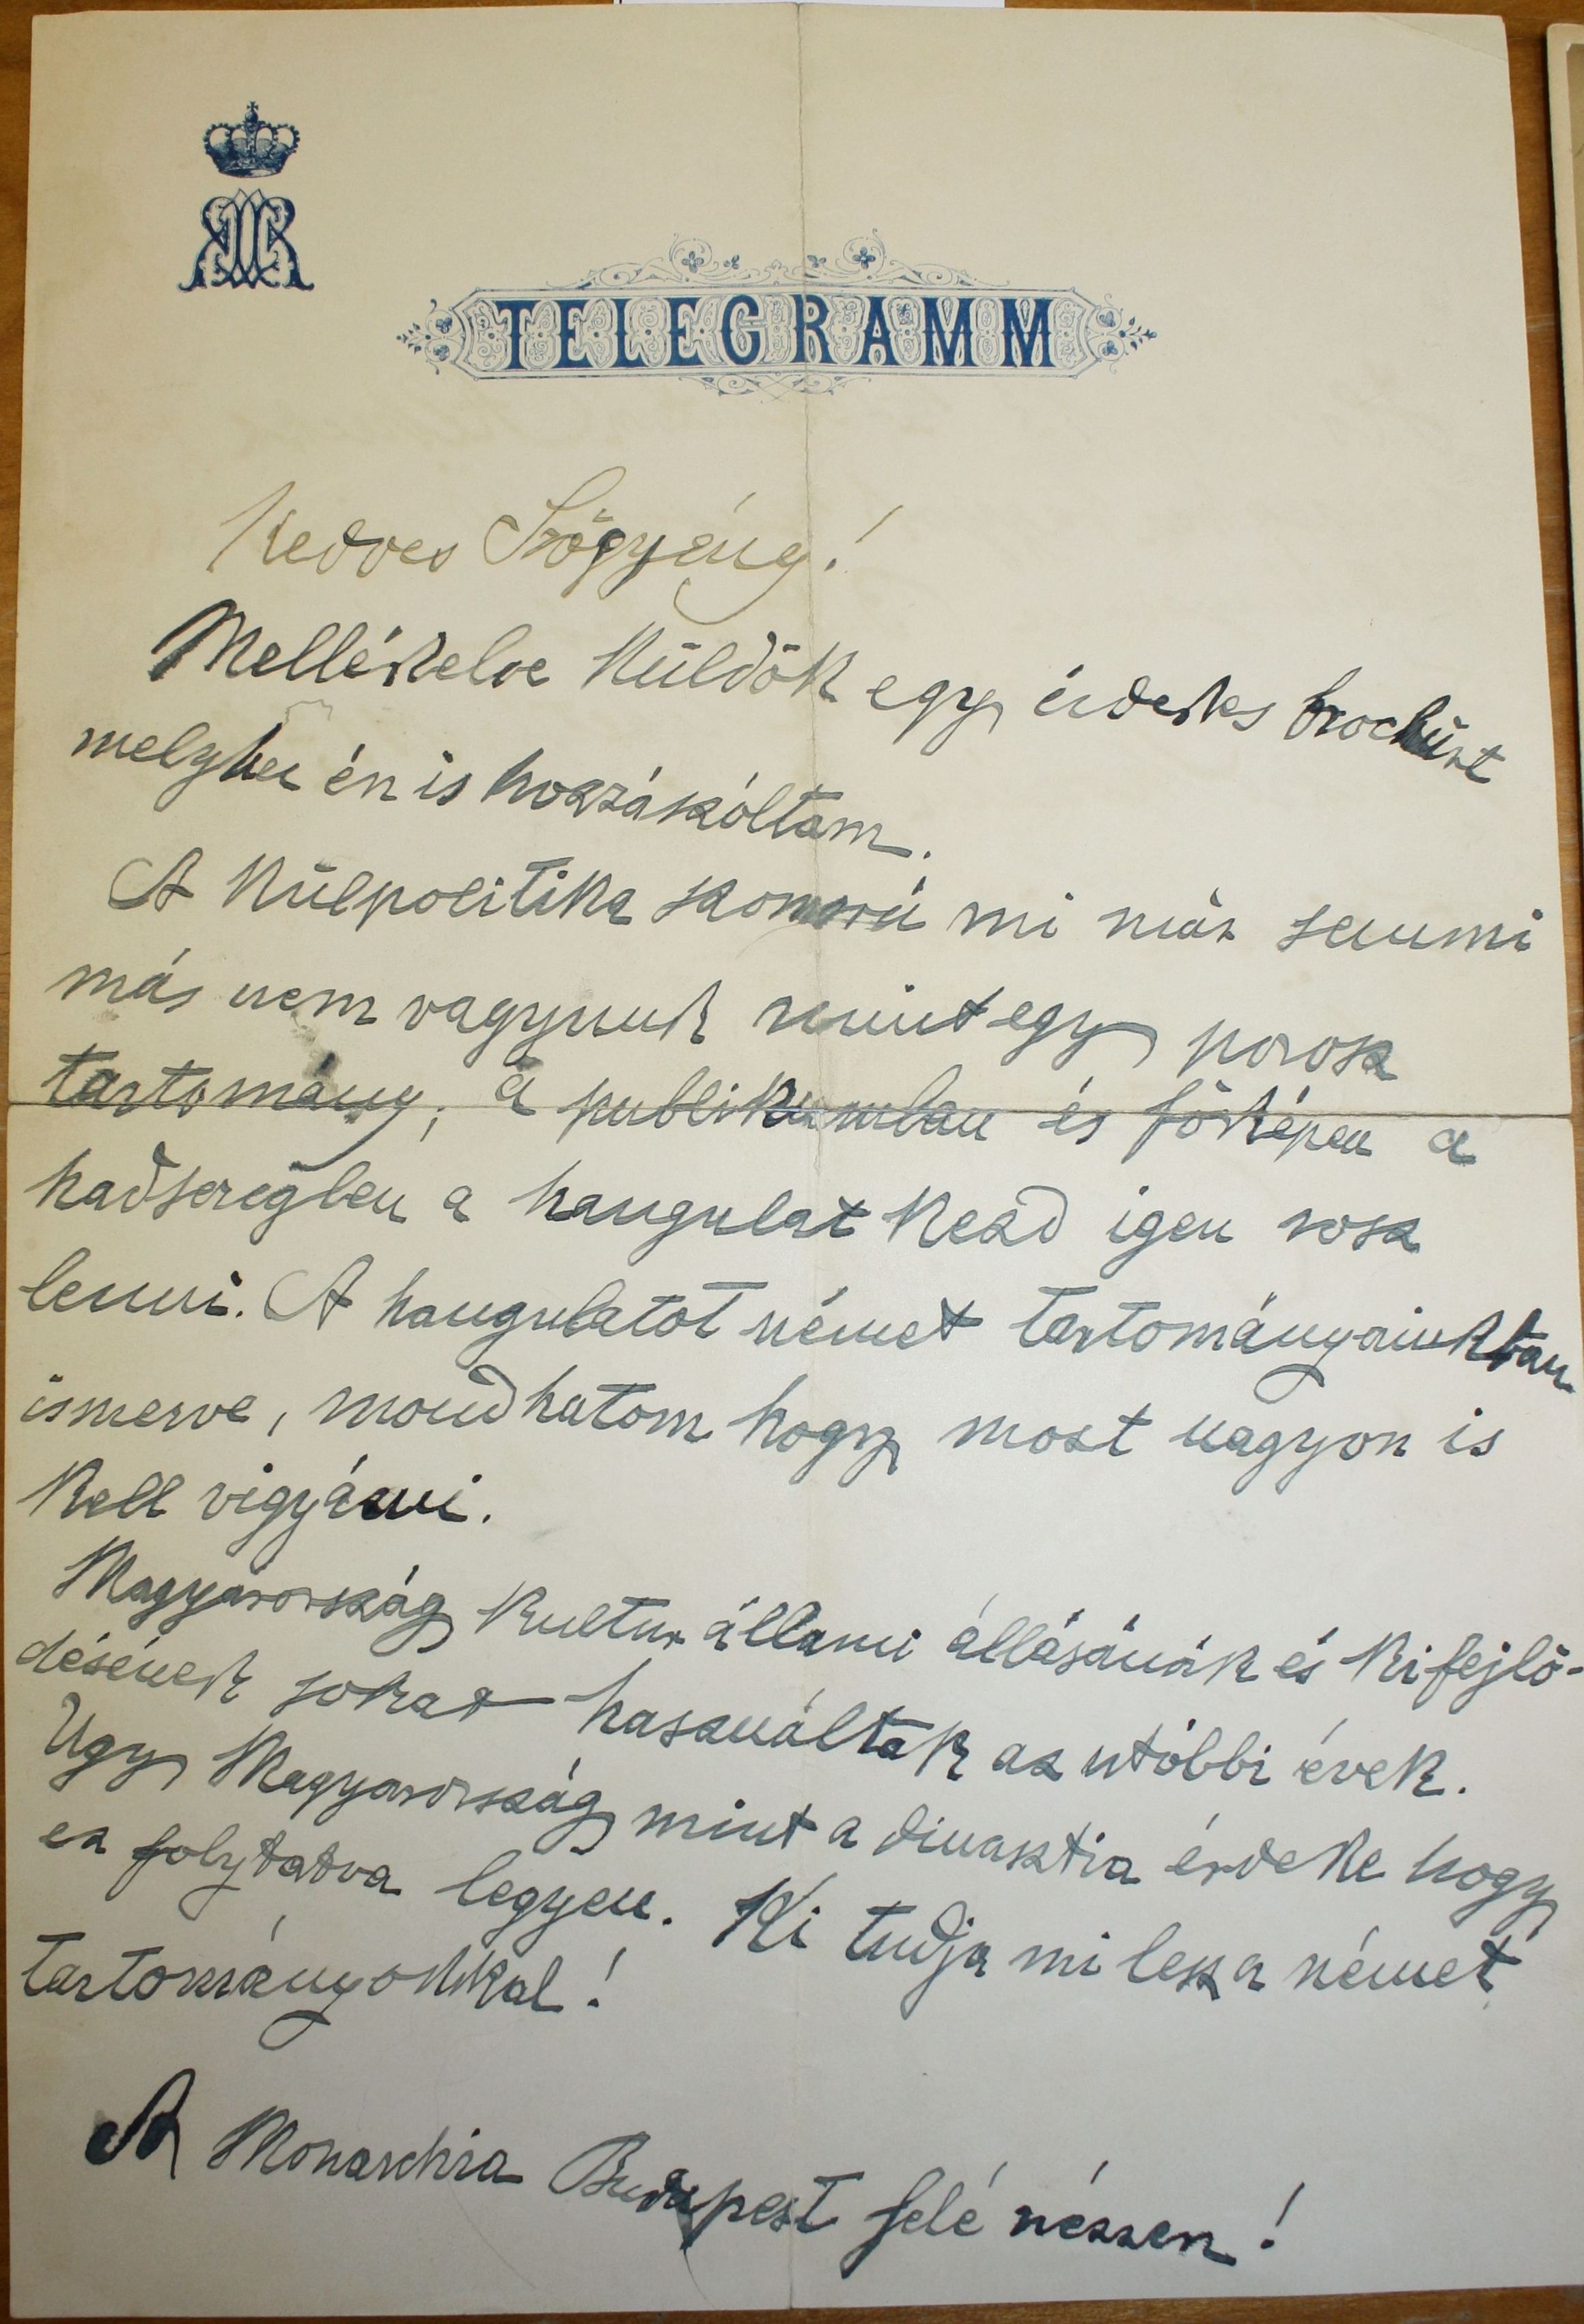 TELEGRAMM
Kedves Szögyény!
Mellékelve küldök egy érdekes brochürt
melyhez én is hozzászóltam.
A külpolitika szomorú mi már semmi
más nem vagyunk mint egy porosz
tartomány, a publikumban és főképen a
hadseregben a hangulat kezd igen rosz
lenni. A hangulatot német tartományainkban
ismerve, mondhatom hogy most nagyon is
kell vigyázni.
Magyarország kultur állami állásának és kifejlő-
désének sokat használtak az utóbbi évek.
Ugy Magyarország mint a dinasztia érdeke hogy
ez folytatva legyen. Ki tudja mi lesz a német
tartományokkal!
A Monarchia Budapest felé nézzen!